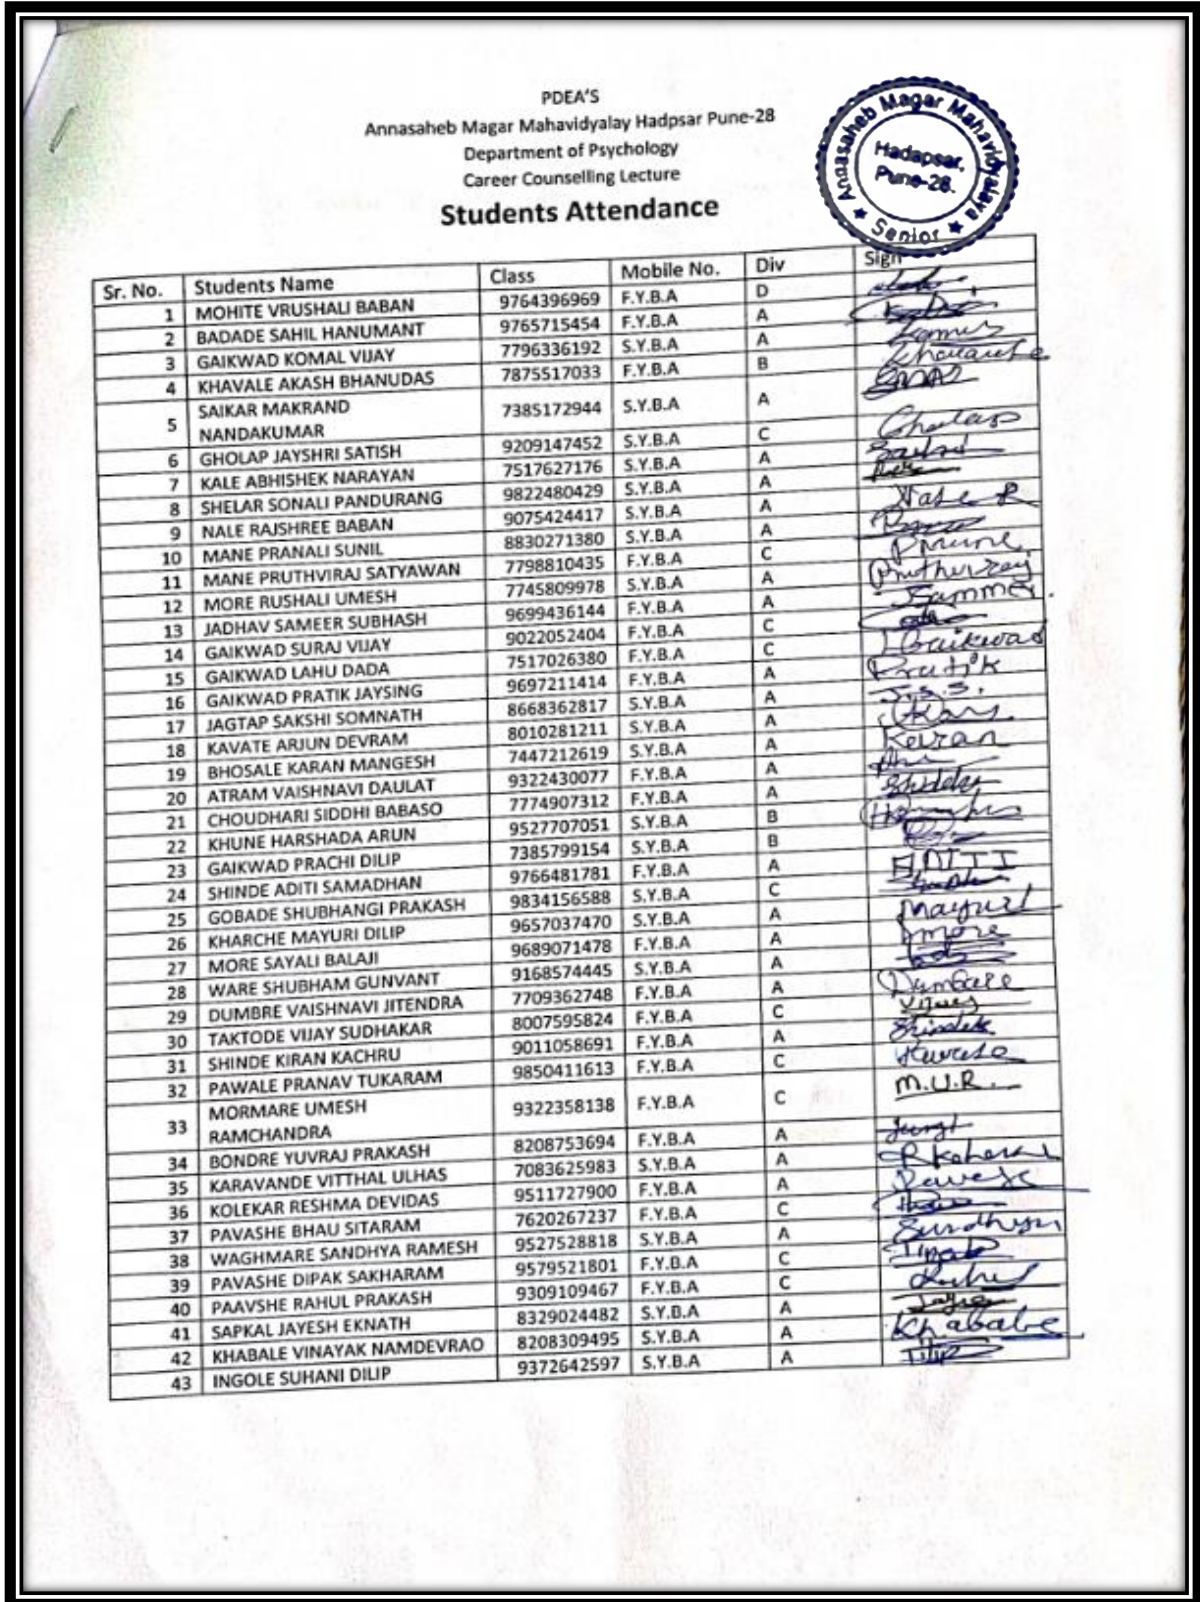 PDEA'S
Annasaheb Magar Mahavidyalay Hadpsar Pune-28
Department of Psychology
Career Counselling Lecture
Students Attendance
Annasaheb Magar Mahavidyalaya
Hadapsar,
Pune-28.
★ Senior ★
Sr. No. Students Name Class Mobile No. Div Sign
1 MOHITE VRUSHALI BABAN 9764396969 F.Y.B.A D
2 BADADE SAHIL HANUMANT 9765715454 F.Y.B.A A
3 GAIKWAD KOMAL VIJAY 7796336192 S.Y.B.A A
4 KHAVALE AKASH BHANUDAS 7875517033 F.Y.B.A B
5 SAIKAR MAKRAND
NANDAKUMAR 7385172944 S.Y.B.A A
6 GHOLAP JAYSHRI SATISH 9209147452 S.Y.B.A C Gholap
7 KALE ABHISHEK NARAYAN 7517627176 S.Y.B.A A
8 SHELAR SONALI PANDURANG 9822480429 S.Y.B.A A
9 NALE RAJSHREE BABAN 9075424417 S.Y.B.A A
10 MANE PRANALI SUNIL 8830271380 S.Y.B.A A
11 MANE PRUTHVIRAJ SATYAWAN 7798810435 F.Y.B.A C
12 MORE RUSHALI UMESH 7745809978 S.Y.B.A A
13 JADHAV SAMEER SUBHASH 9699436144 F.Y.B.A A
14 GAIKWAD SURAJ VIJAY 9022052404 F.Y.B.A C
15 GAIKWAD LAHU DADA 7517026380 F.Y.B.A C LGaikwad
16 GAIKWAD PRATIK JAYSING 9697211414 F.Y.B.A A Pratik
17 JAGTAP SAKSHI SOMNATH 8668362817 S.Y.B.A A J.S.S.
18 KAVATE ARJUN DEVRAM 8010281211 S.Y.B.A A
19 BHOSALE KARAN MANGESH 7447212619 S.Y.B.A A Karan
20 ATRAM VAISHNAVI DAULAT 9322430077 F.Y.B.A A
21 CHOUDHARI SIDDHI BABASO 7774907312 F.Y.B.A A
22 KHUNE HARSHADA ARUN 9527707051 S.Y.B.A B
23 GAIKWAD PRACHI DILIP 7385799154 S.Y.B.A B
24 SHINDE ADITI SAMADHAN 9766481781 F.Y.B.A A
25 GOBADE SHUBHANGI PRAKASH 9834156588 S.Y.B.A C
26 KHARCHE MAYURI DILIP 9657037470 S.Y.B.A A Mayuri
27 MORE SAYALI BALAJI 9689071478 F.Y.B.A A more
28 WARE SHUBHAM GUNVANT 9168574445 S.Y.B.A A
29 DUMBRE VAISHNAVI JITENDRA 7709362748 F.Y.B.A A
30 TAKTODE VIJAY SUDHAKAR 8007595824 F.Y.B.A C
31 SHINDE KIRAN KACHRU 9011058691 F.Y.B.A A
32 PAWALE PRANAV TUKARAM 9850411613 F.Y.B.A C
33 MORMARE UMESH
RAMCHANDRA 9322358138 F.Y.B.A C M.U.R.
34 BONDRE YUVRAJ PRAKASH 8208753694 F.Y.B.A A
35 KARAVANDE VITTHAL ULHAS 7083625983 S.Y.B.A A
36 KOLEKAR RESHMA DEVIDAS 9511727900 F.Y.B.A A
37 PAVASHE BHAU SITARAM 7620267237 F.Y.B.A C
38 WAGHMARE SANDHYA RAMESH 9527528818 S.Y.B.A A
39 PAVASHE DIPAK SAKHARAM 9579521801 F.Y.B.A C
40 PAAVSHE RAHUL PRAKASH 9309109467 F.Y.B.A C
41 SAPKAL JAYESH EKNATH 8329024482 S.Y.B.A A
42 KHABALE VINAYAK NAMDEVRAO 8208309495 S.Y.B.A A Khabale
43 INGOLE SUHANI DILIP 9372642597 S.Y.B.A A